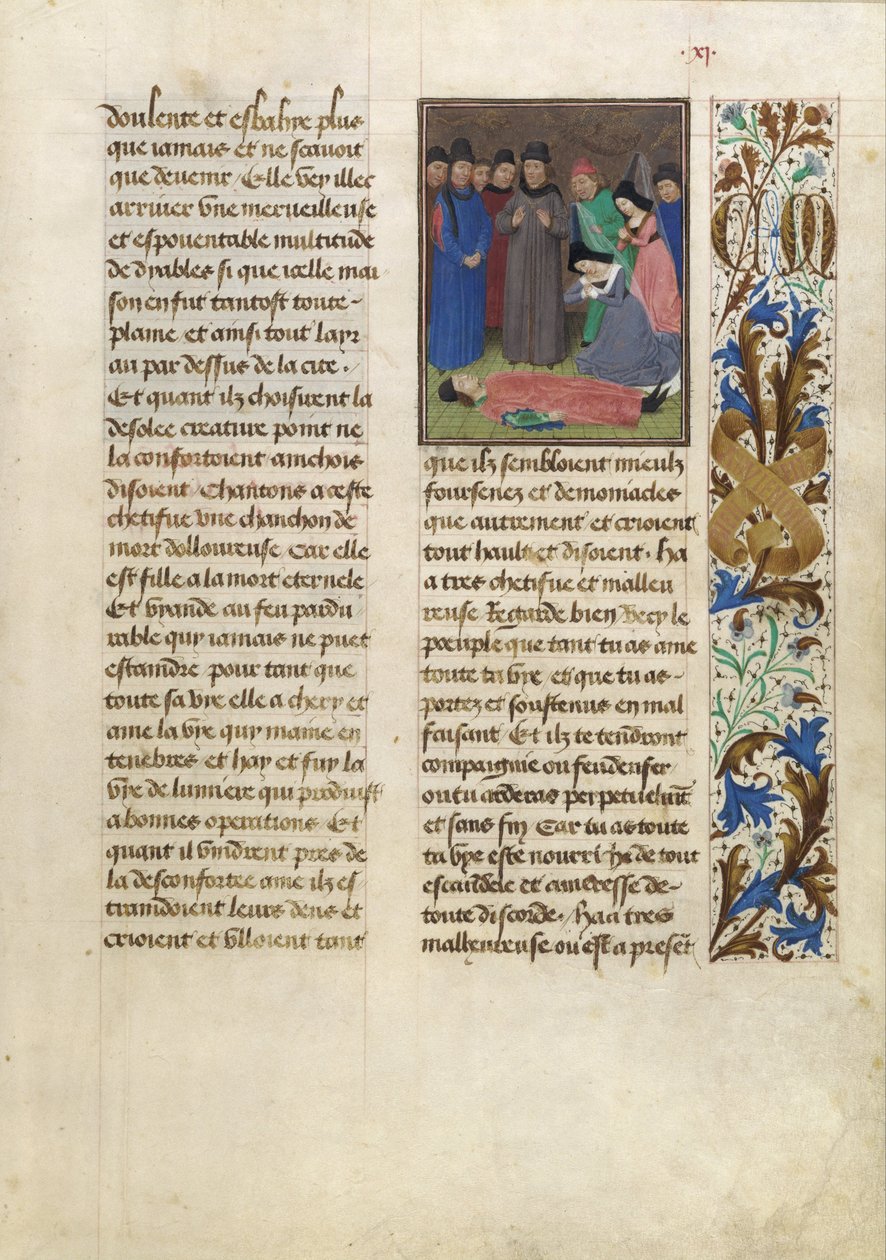 .xj.
doulente et esbahye plus
que iamais et ne scauoit
que deuenir / Elle vey illec
arriuer vne merueilleuse
et espouentable multitude
de dyables si que icelle mai
son en fut tantost toute-
plaine / et ainsi tout layr
au par dessus de la cite .
Et quant ilz choisirent la
desolee creature point ne
la confortoient ainchois
disoient / Chantons a ceste
chetifue vne chanchon de
mort dolloureuse / Car elle
est fille a la mort eternele
Et vyande au feu pardu /
rable quy iamais ne puet
estaindre / pour tant que
toute sa vye elle a chery et
ame la vye quy maine en
tenebres et hay et fuy la
vye de lumiere qui produist
a bonnes operations / Et
quant il vindrent pres de
la desconfortee ame ilz es /
traindoient leurs dens et
crioient et vlloient tant
que ilz sembloient mieulz
foursenez et demoniacles
que autrement / et crioient
tout hault et disoient . Ha
a tres chetifue et malleu
reuse Regarde bien Vecy le
poeuple que tant tu as ame
toute ta vye / et que tu as -
portez et soustenus en mal
faisant / Et ilz te tendront
compaignie ou feu denfer /
ou tu arderas perpetuelmt
et sans fin / Car tu as toute
ta vye este nourri de tout
escandele et ameresse de-
toute discorde . / haa tres
malheureuse ou est a presēt